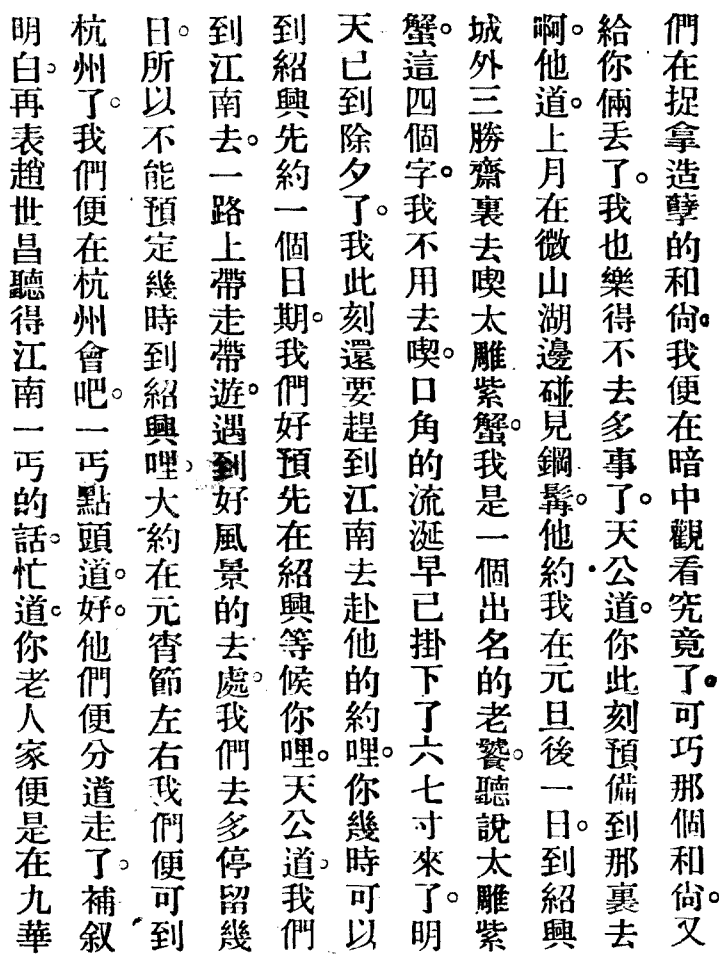 們在捉拿造孽的和尙。我便在暗中觀看究竟了。可巧那個和尙。又
給你倆丟了。我也樂得不去多事了。天公道。你此刻預備到那裏去
啊。他道。上月在微山湖邊碰見鋼髯。他約我在元旦後一日。到紹興
城外三勝齋裏去喫太雕紫蟹。我是一個出名的老饕。聽說太雕紫
蟹。這四個字。我不用去喫。口角的流涎早已掛下了六七寸來了。明
天已到除夕了。我此刻還要趕到江南去赴他的約哩。你幾時可以
到紹興先約一個日期。我們好預先在紹興等候你哩。天公道。我們
到江南去。一路上帶走帶遊。遇到好風景的去處。我們去多停留幾
日。所以不能預定幾時到紹興哩。大約在元宵節左右我們便可到
杭州了。我們便在杭州會吧。一丐點頭道。好。他們便分道走了。補叙
明白。再表趙世昌聽得江南一丐的話。忙道。你老人家便是在九華